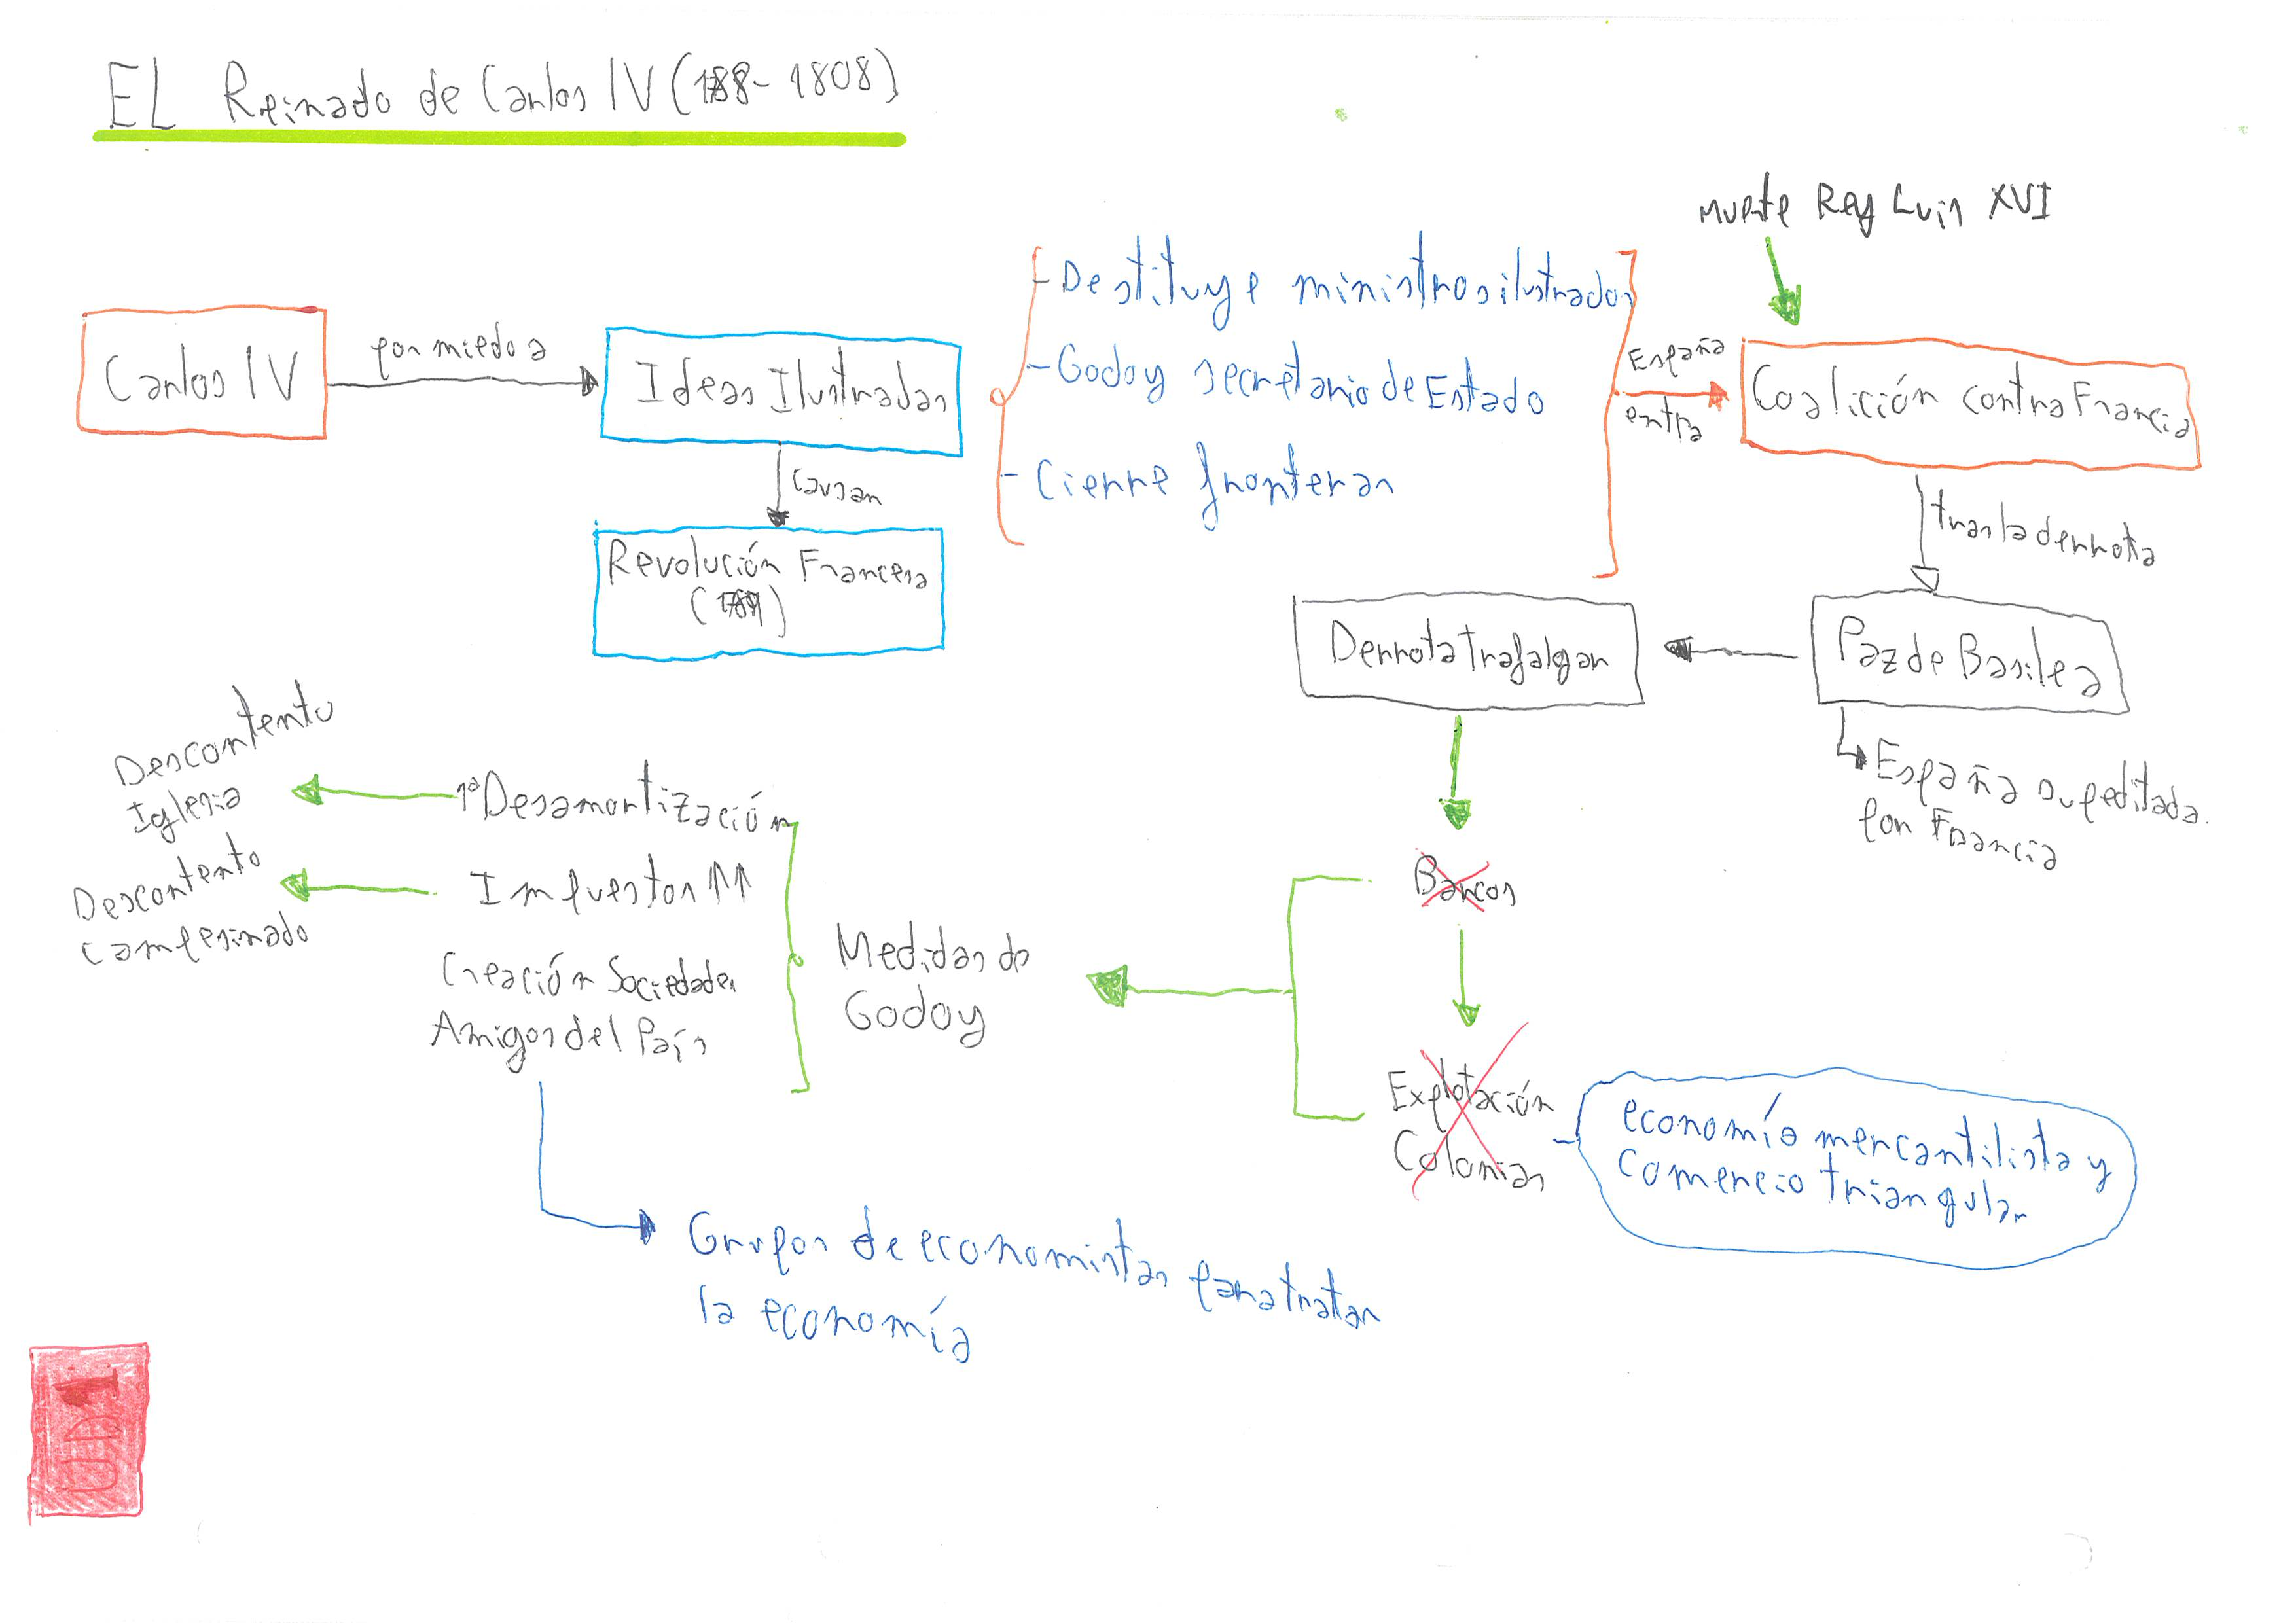 EL Reinado de Carlos IV (1788-1808)
muerte Rey Luis XVI
Carlos IV
por miedo a
Ideas Ilustradas
causan
Revolución Francesa
(1789)
- Destituye ministros ilustrados
- Godoy secretario de Estado
- Cierre fronteras
España
entra
Coalición contra Francia
tras la derrota
Paz de Basilea
España supeditada
por Francia
Derrota Trafalgar
Barcos
Explotación
Colonias
economía mercantilista y
comercio triangular
Medidas de
Godoy
1ª Desamortización
Impuestos ↑↑
Creación Sociedades
Amigos del País
Descontento
Iglesia
Descontento
campesinado
Grupos de economistas para tratar
la economía
UD1